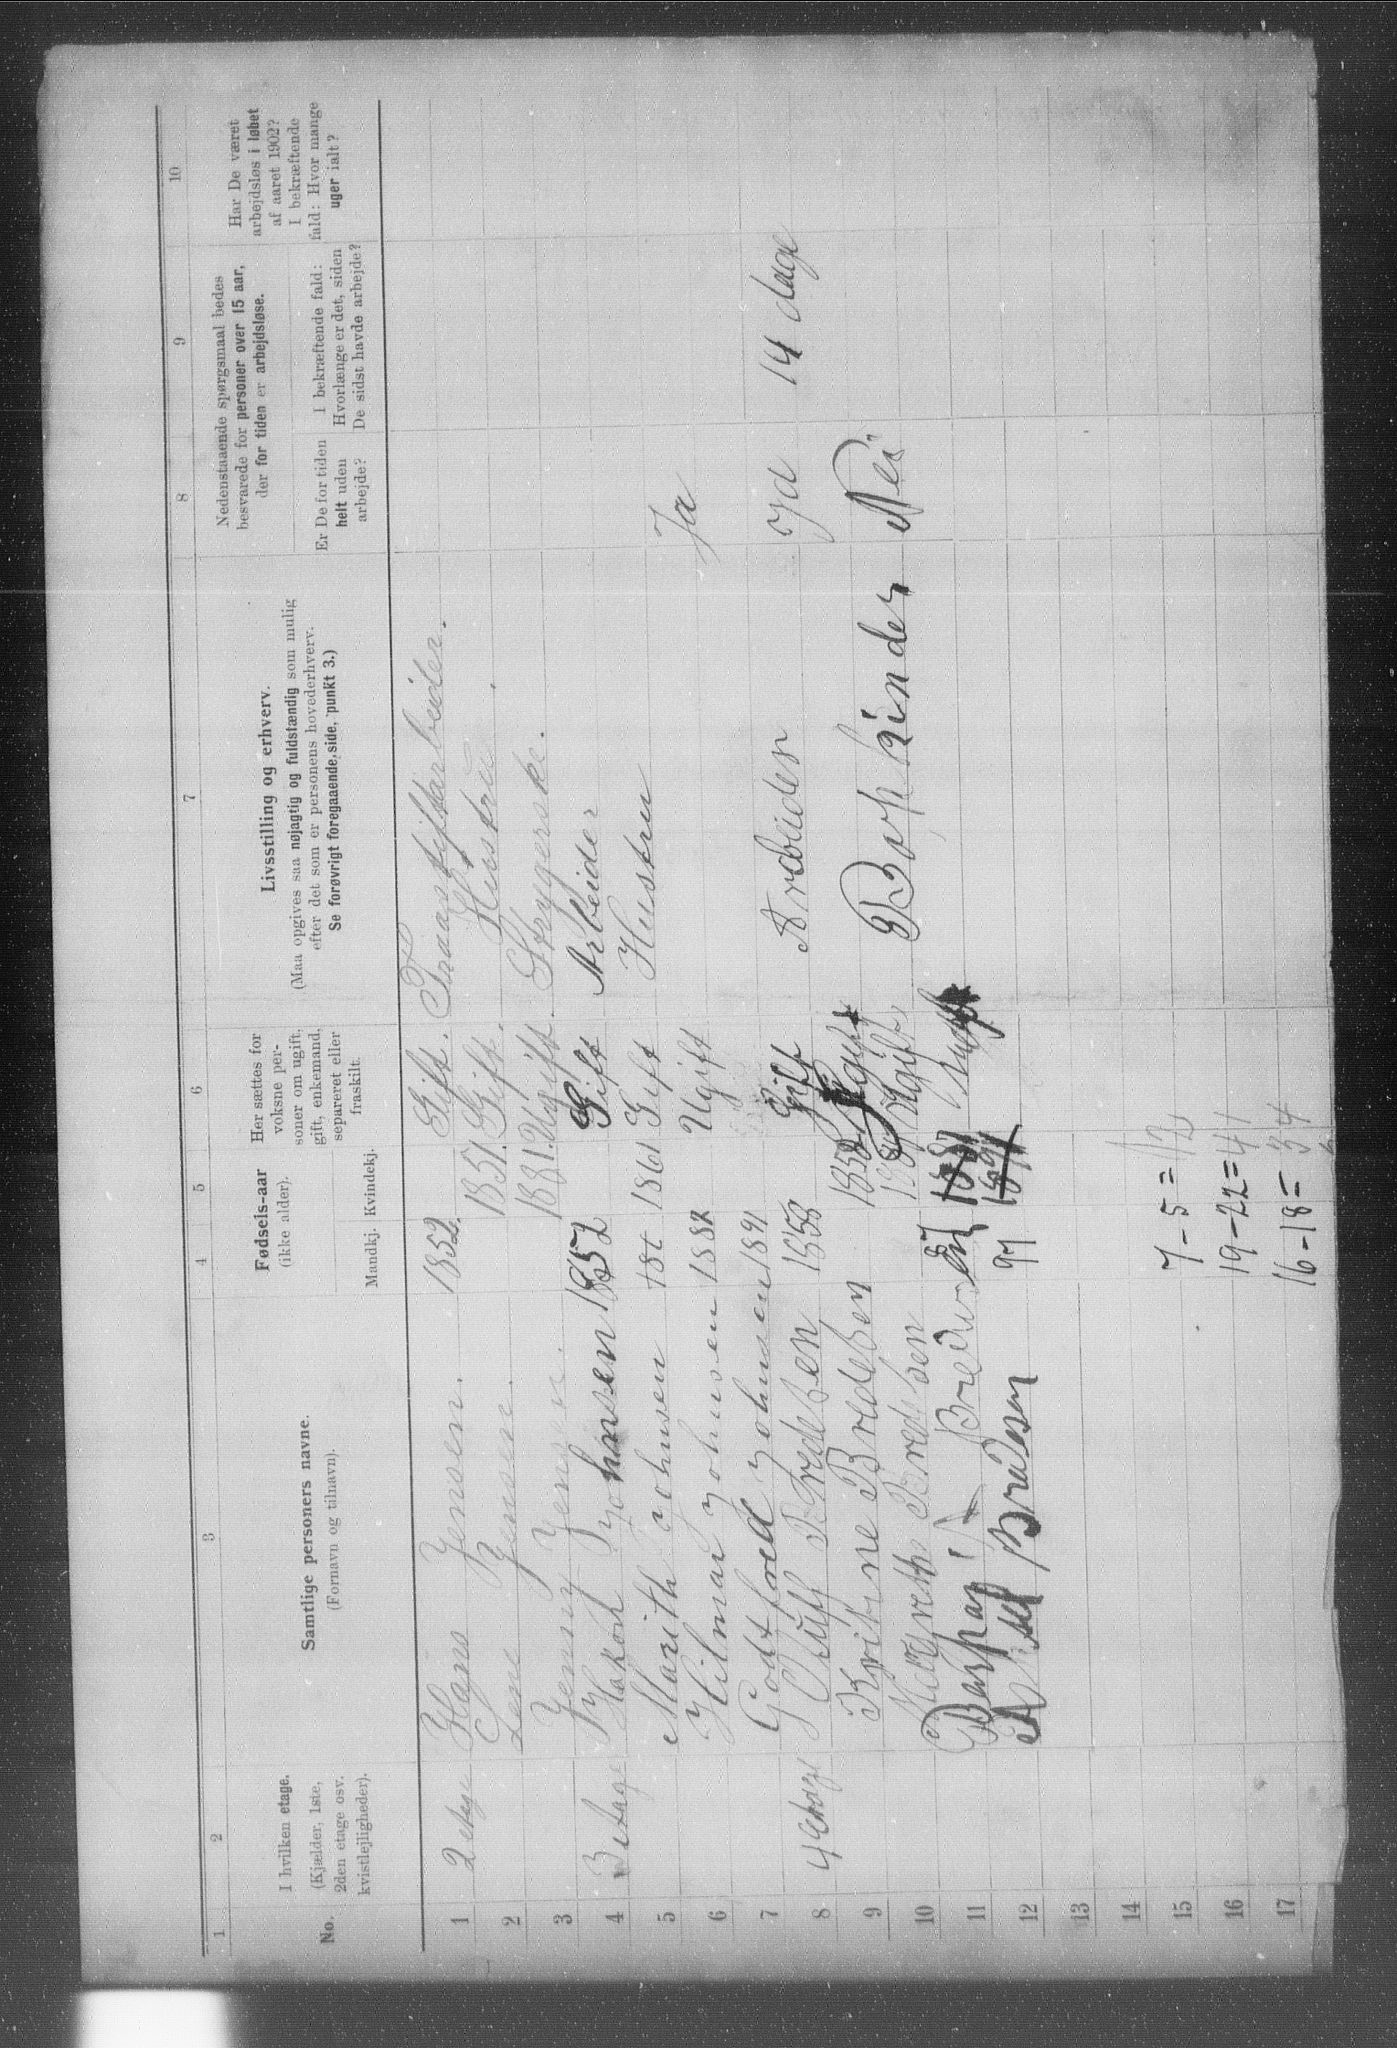 1 2 3 4 5 6 7 8 9 10
No.
I hvilken etage.
(Kjælder, 1ste,
2den etage osv.
kvistlejligheder).
Samtlige personers navne.
(Fornavn og tilnavn).
Fødsels-aar
(ikke alder).
Mandkj. Kvindekj.
Her sættes for
voksne per-
soner om ugift,
gift, enkemand,
separeret eller
fraskilt.
Livsstilling og erhverv.
(Maa opgives saa nøjagtig og fuldstændig som mulig
efter det som er personens hovederhverv.
Se forøvrigt foregaaende side, punkt 3.)
Nedenstaaende spørgsmaal bedes
besvarede for personer over 15 aar,
der for tiden er arbejdsløse.
Er De for tiden
helt uden
arbejde?
I bekræftende fald:
Hvorlænge er det, siden
De sidst havde arbejde?
Har De været
arbejdsløs i løbet
af aaret 1902?
I bekræftende
fald: Hvor mange
uger ialt?
1 2 etage Hans Jensen. 1852. Gift.
2 Lene Jensen. 1851. Gift. Hustru
3 Jenny Jensen. 1881. Ugift. Strygerske.
4 3 etage Hakon Johnsen 1852 Gift Arbeider
5 Marith Johnsen 1861 Gift Hustru Ja
6 Hilmar Johnsen 1882 Ugift
7 Godtfred Johnsen 1891
8 4 Etage Bredesen 1858 Gift Arbeider Ja 14 dage
9 Bredesen 1858
10 Bredesen Ugift Nei
11
12 Bredesen 97
13
14
15 7-5=12
16 19-22=41
17 16-18=34